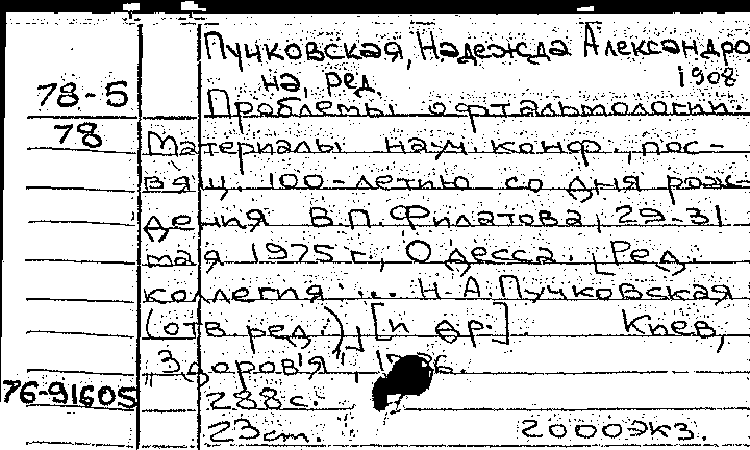 Пучковская, Надежда Александро
на, ред. 1908
78-5 Проблемы офтальмологии.
78 Материалы науч. конф., пос-
вящ. 100-летию со дня рож-
дения В.П. Филатова, 29-31
мая 1975 г., Одесса. [Ред.
коллегия: ... Н.А. Пучковская
(отв. ред.), [и др.] Киев,
"Здоров'я",
76-91605 288 с.
23 cm. 2000 экз.